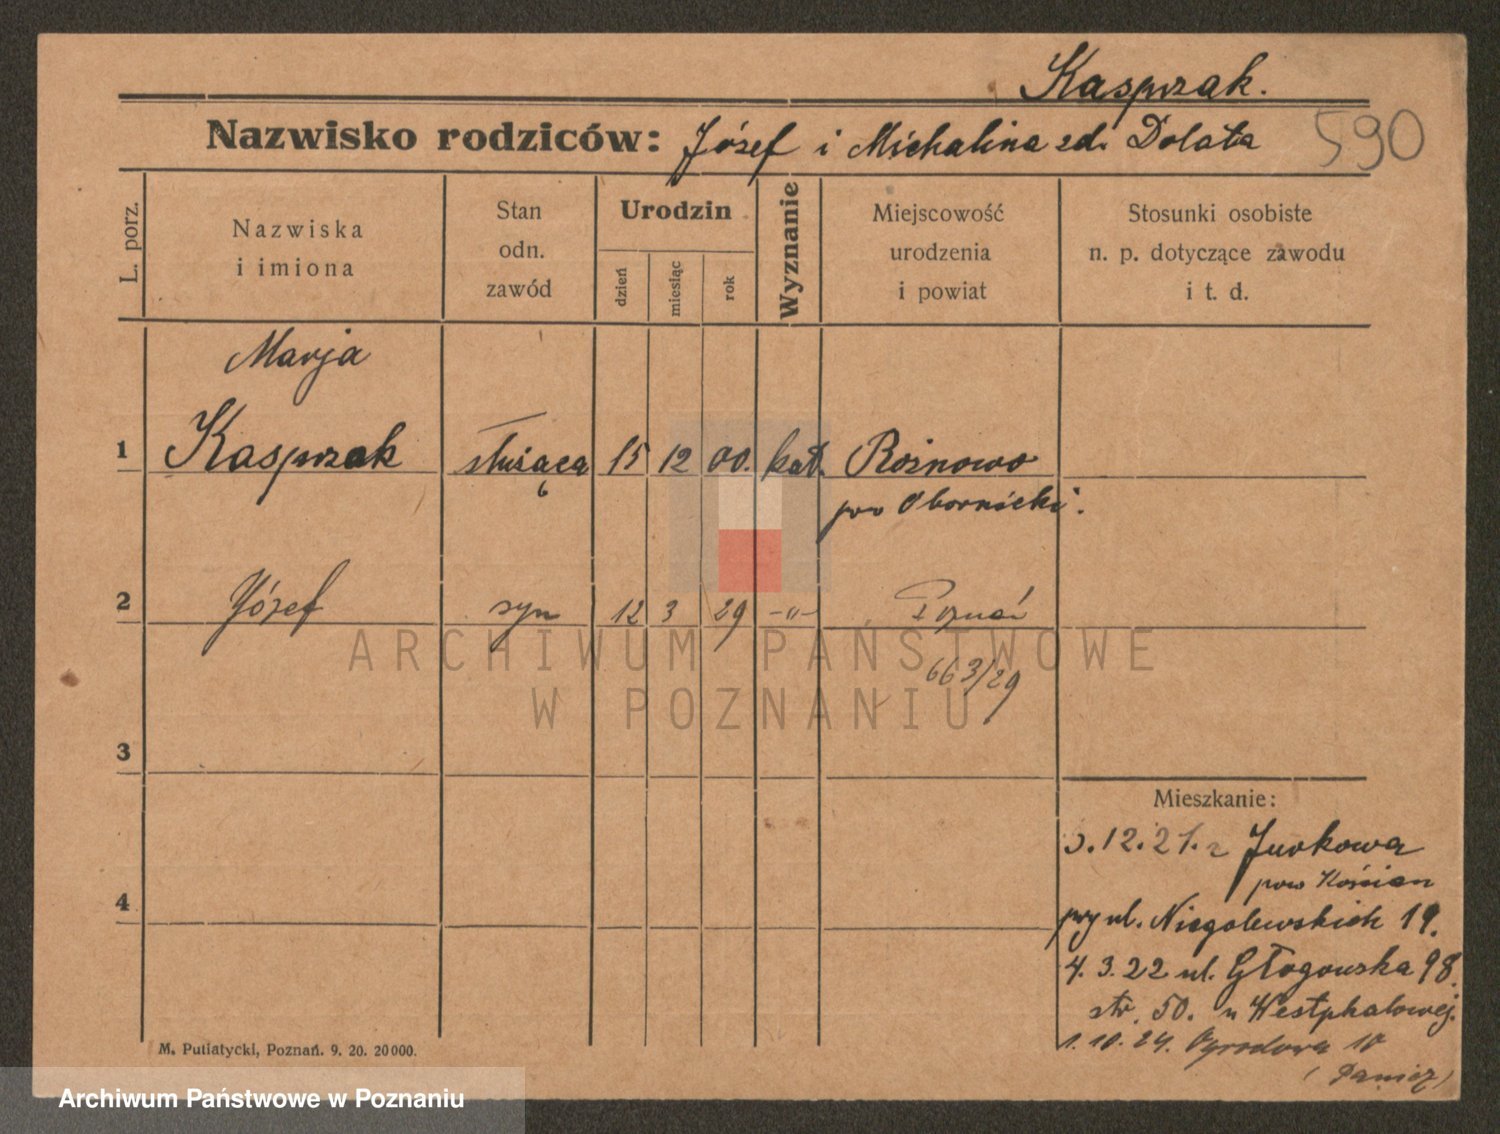 Kasprzak.
Nazwisko rodziców: Józef i Michalina zd. Dolata
590
L. porz.
Nazwiska
i imiona
Stan
odn.
zawód
Urodzin
dzień
miesiąc
rok
Wyznanie
Miejscowość
urodzenia
i powiat
Stosunki osobiste
n. p. dotyczące zawodu
i t. d.
Marja
1 Kasprzak służąca 15 12 00. kat. Rożnowo
pow Obornicki.
2 Józef syn 12 3 29 -"- Poznań
663/29
3
4
Mieszkanie:
3.12.21. z Jurkowa
pow Kościan
przy ul. Niegolewskich 19.
4.3.22 ul. Głogowska 98.
str. 50. u Westphalowej.
1.10.24. Ogrodowa 10
(Panicz)
M. Putiatycki, Poznań. 9. 20. 20000.
ARCHIWUM PAŃSTWOWE
W POZNANIU
Archiwum Państwowe w Poznaniu